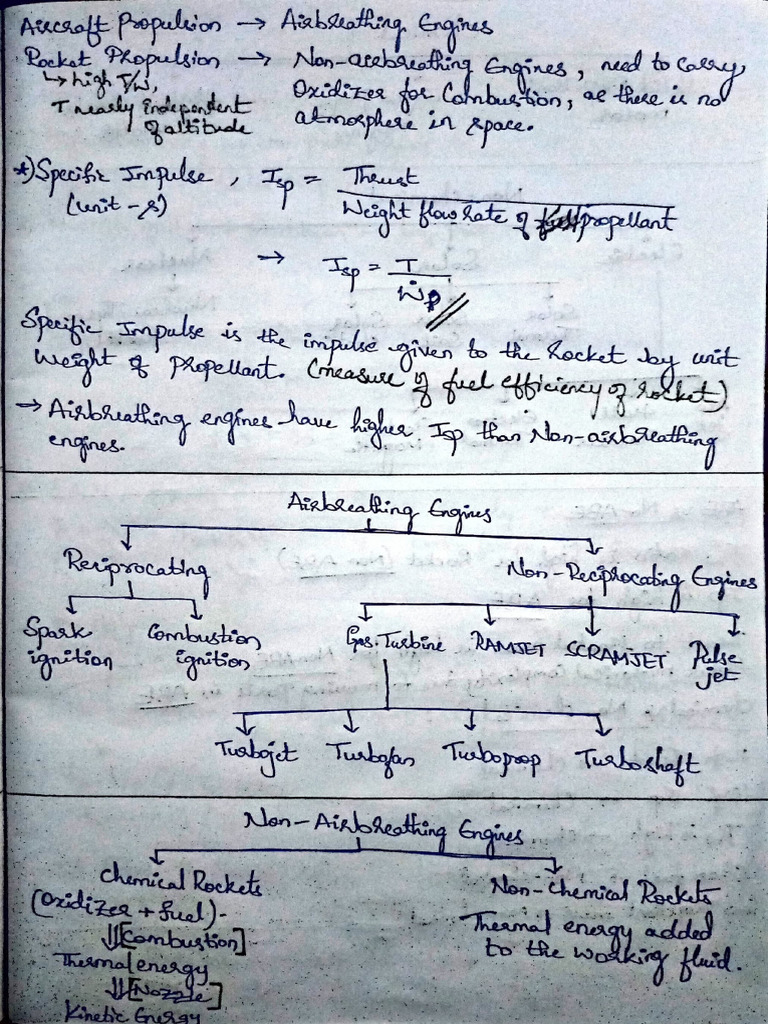 Aircraft Propulsion → Airbreathing Engines
Rocket Propulsion → Non-airbreathing Engines, need to carry
↳ high T/W, Oxidizer for Combustion, as there is no
T nearly independent atmosphere in space.
of altitude
*) Specific Impulse, Isp = Thrust
(unit - s) Weight flow rate of propellant
→ Isp = T
Ẇp //
Specific Impulse is the impulse given to the rocket by unit
Weight of Propellant. (measure of fuel efficiency of rocket)
→ Airbreathing engines have higher Isp than Non-airbreathing
engines.
Airbreathing Engines
Reciprocating Non-Reciprocating Engines
Spark Combustion Gas Turbine RAMJET SCRAMJET Pulse
ignition ignition jet
Turbojet Turbofan Turboprop Turboshaft
Non-Airbreathing Engines
Chemical Rockets Non-Chemical Rockets
(Oxidizer + fuel) - Thermal energy added
⇓ [Combustion] to the working fluid.
Thermal energy
⇓ [Nozzle]
Kinetic Energy